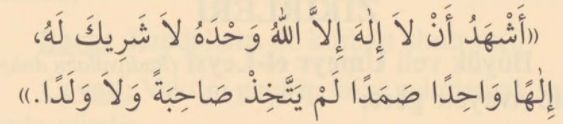 «أَشْهَدُ أَنْ لاَ إِلٰهَ إِلاَّ اللّٰهُ وَحْدَهُ لاَ شَرِيكَ لَهُ،
إِلٰهًا وَاحِدًا صَمَدًا لَمْ يَتَّخِذْ صَاحِبَةً وَلاَ وَلَدًا.»